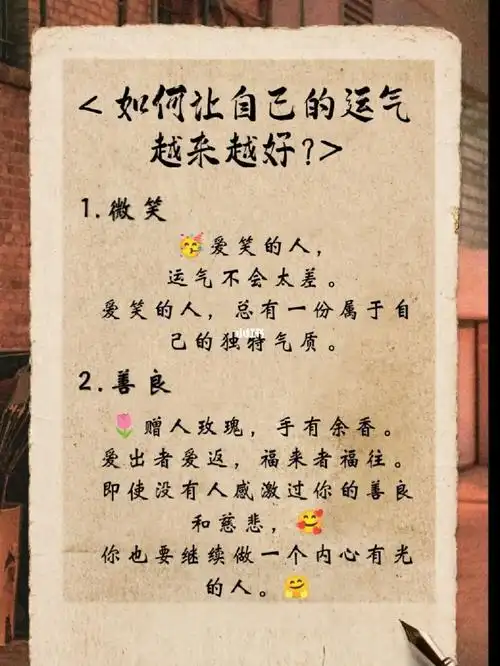 <如何让自己的运气
越来越好?>
1.微笑
🥳爱笑的人，
运气不会太差。
爱笑的人，总有一份属于自
己的独特气质。
2.善良
🌷赠人玫瑰，手有余香。
爱出者爱返，福来者福往。
即使没有人感激过你的善良
和慈悲，🥰
你也要继续做一个内心有光
的人。🤗